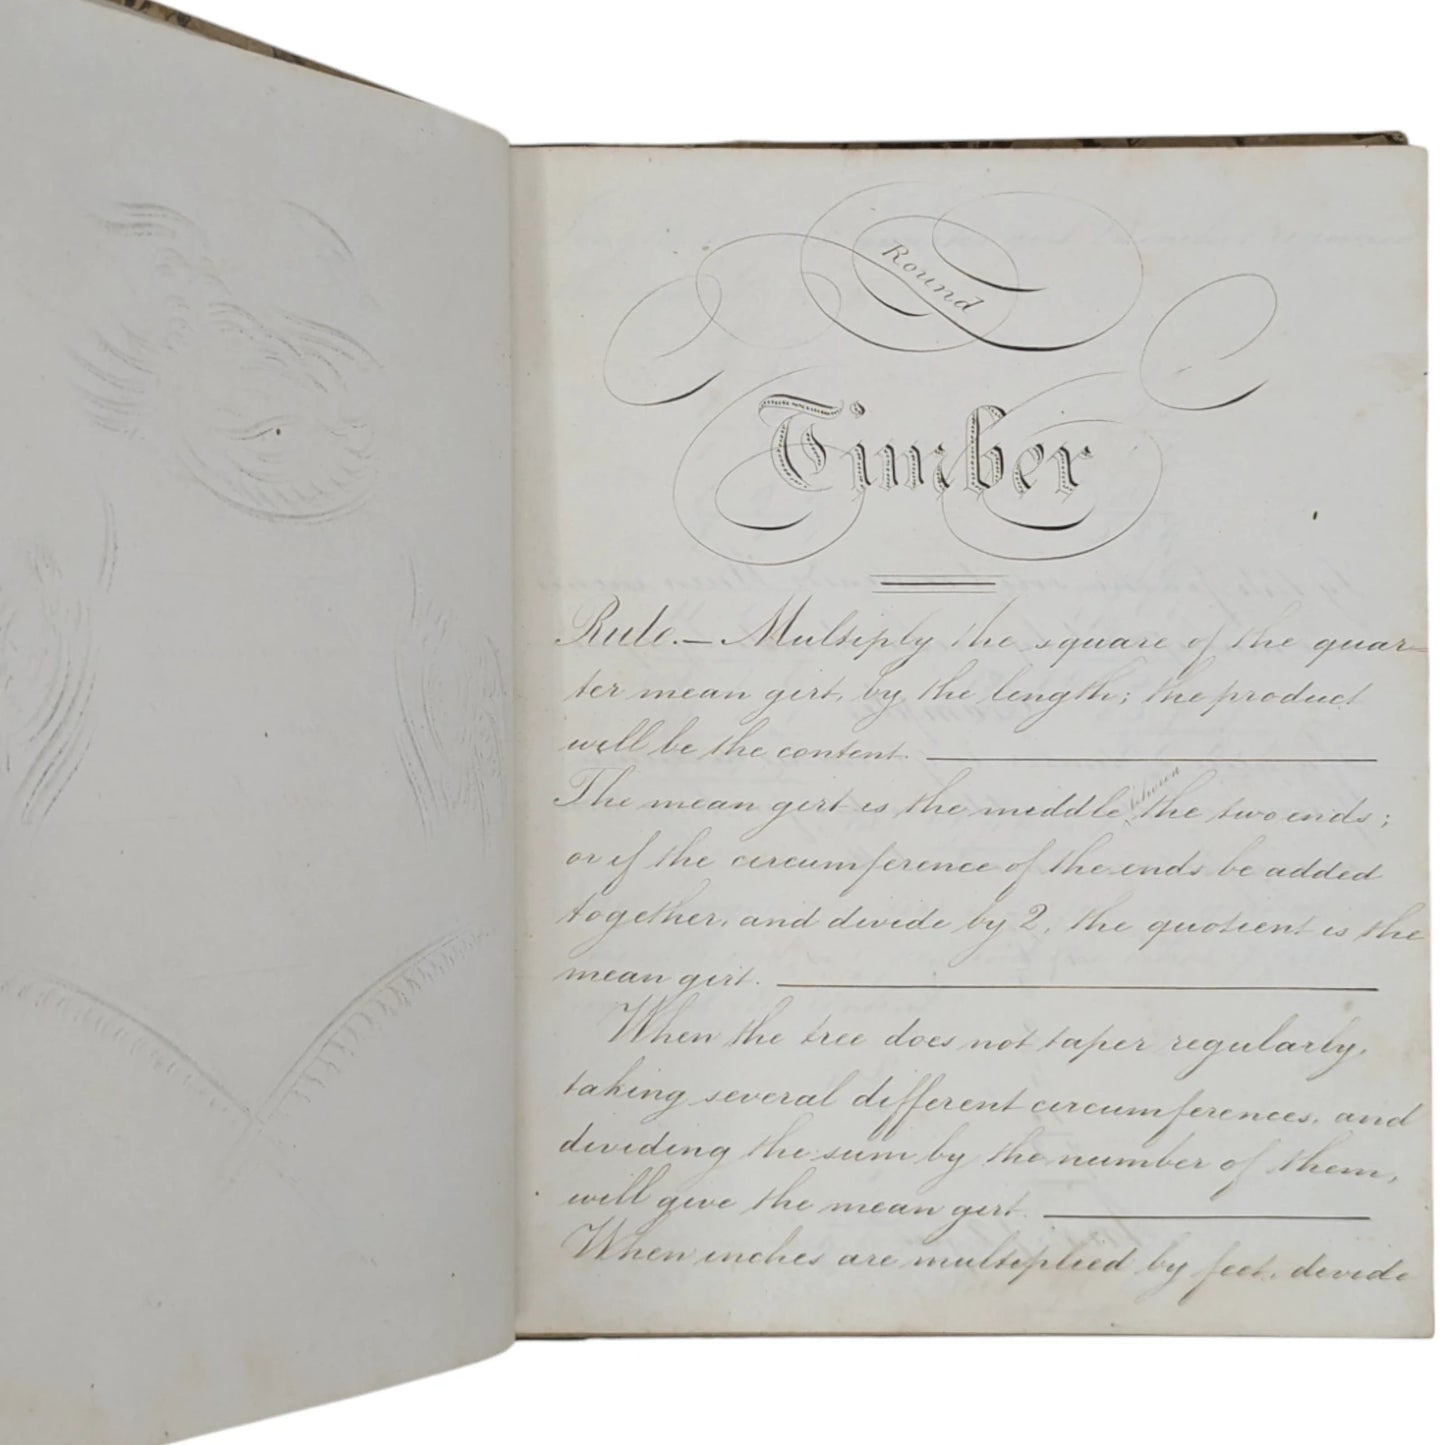 Round
Timber
Rule.— Multiply the square of the quar=
ter mean girt, by the length; the product
will be the content.
The mean girt is the middle between the two ends;
or if the circumference of the ends be added
together, and divide by 2, the quotient is the
mean girt.
When the tree does not taper regularly,
taking several different circumferences, and
dividing the sum by the number of them,
will give the mean girt.
When inches are multiplied by feet, divide